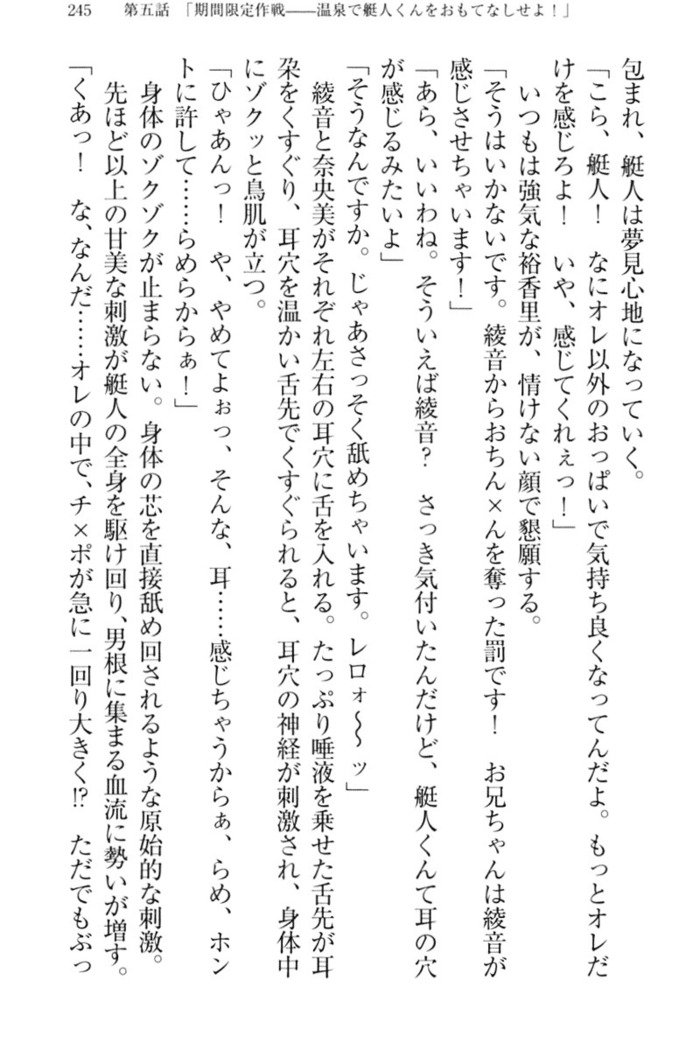 245　第五話　「期間限定作戦――温泉で艇人くんをおもてなしせよ！」
包まれ、艇人は夢見心地になっていく。
「こら、艇人！　なにオレ以外のおっぱいで気持ち良くなってんだよ。もっとオレだ
けを感じろよ！　いや、感じてくれぇっ！」
　いつもは強気な裕香里が、情けない顔で懇願する。
「そうはいかないです。綾音からおちん×んを奪った罰です！　お兄ちゃんは綾音が
感じさせちゃいます！」
「あら、いいわね。そういえば綾音？　さっき気付いたんだけど、艇人くんて耳の穴
が感じるみたいよ」
「そうなんですか。じゃあさっそく舐めちゃいます。レロォ～～ッ」
　綾音と奈央美がそれぞれ左右の耳穴に舌を入れる。たっぷり唾液を乗せた舌先が耳
朶をくすぐり、耳穴を温かい舌先でくすぐられると、耳穴の神経が刺激され、身体中
にゾクッと鳥肌が立つ。
「ひゃあんっ！　や、やめてよぉっ、そんな、耳……感じちゃうからぁ、らめ、ホン
トに許して……らめらからぁ！」
　身体のゾクゾクが止まらない。身体の芯を直接舐め回されるような原始的な刺激。
　先ほど以上の甘美な刺激が艇人の全身を駆け回り、男根に集まる血流に勢いが増す。
「くあっ！　な、なんだ……オレの中で、チ×ポが急に一回り大きく!?　ただでもぶっ